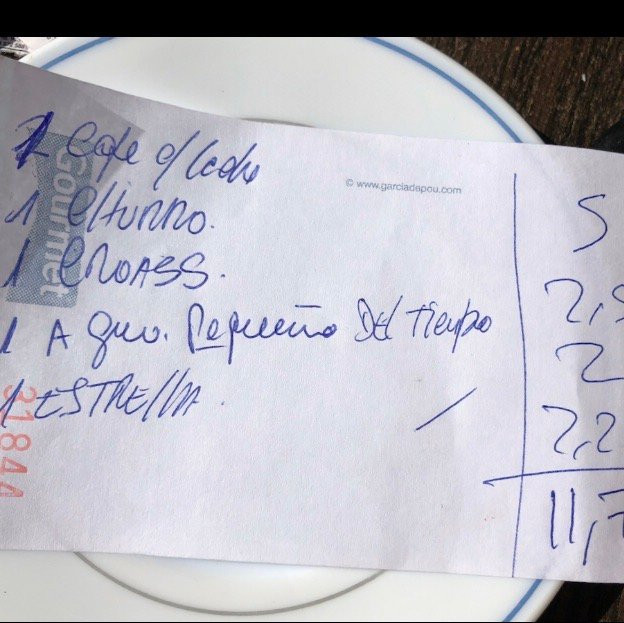 1 Cafe c/ Leche
Gourmet
© www.garciadepou.com
1 CHURRO. 5
1 CROASS. 2,5
1 Agua. Pequeña Del tiempo 2
1 ESTRELLA. / 2,2
11,7
31844